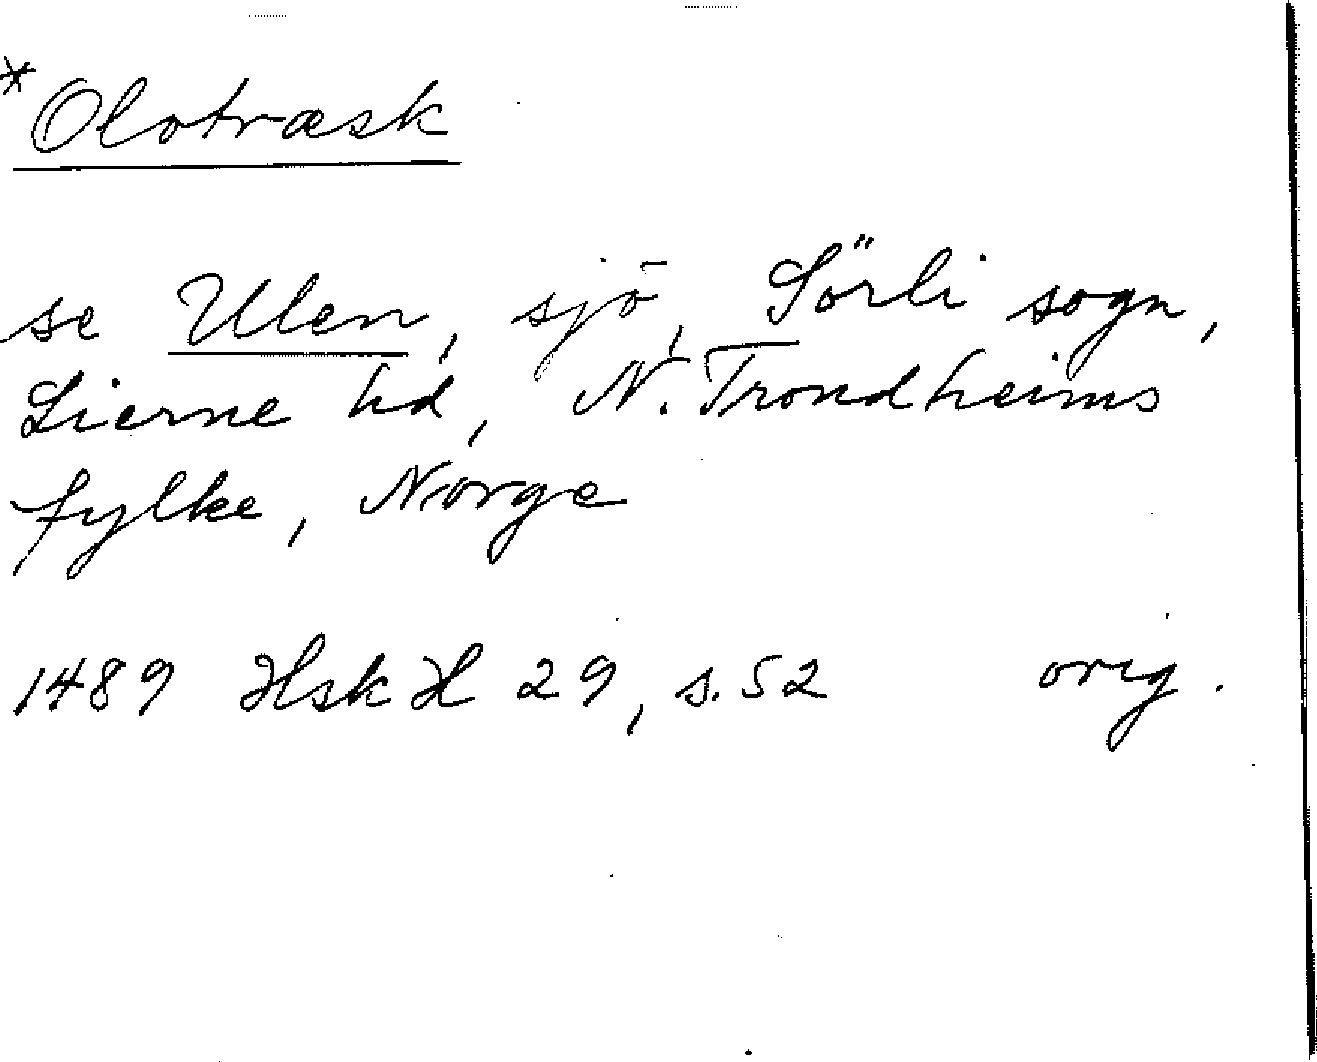 *Olotræsk
se Ulen, sjö, Sörli sogn,
Lierne hd, N. Trondheims
fylke, Norge
1489 Hsk H 29, s. 52 orig.